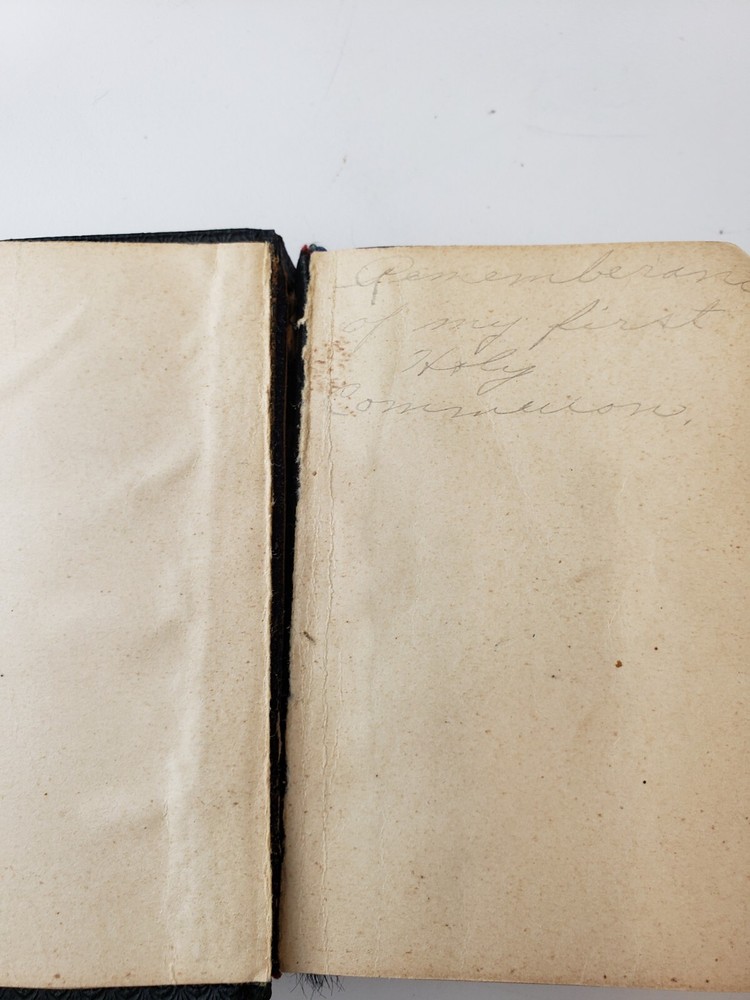 Rememberanc
of my first
Holy
Communion.